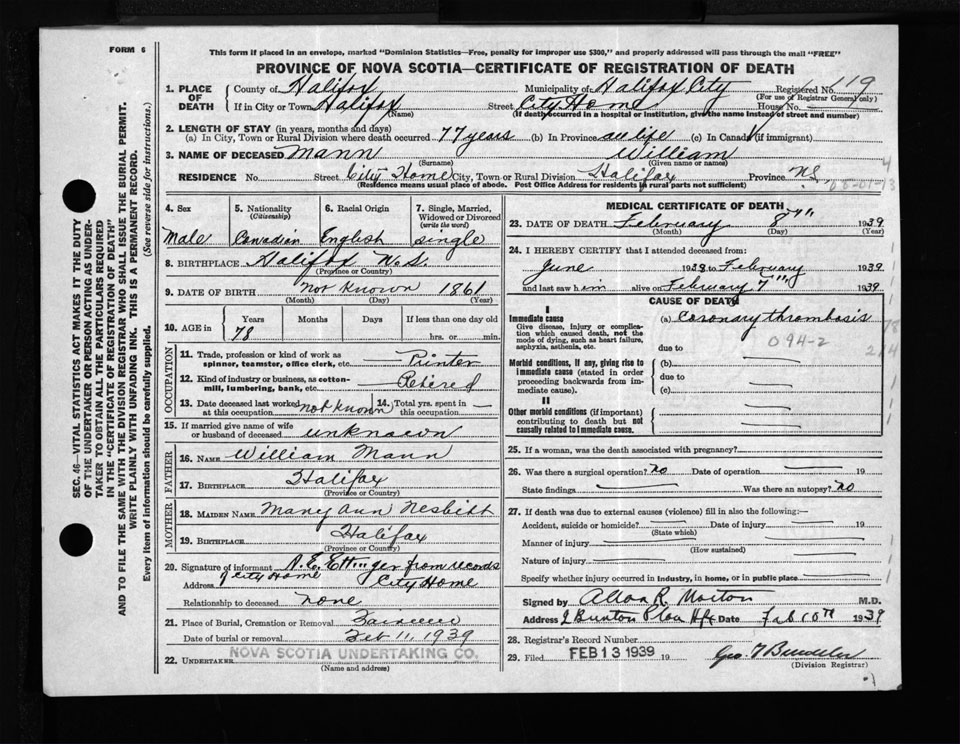 FORM 6
This form if placed in an envelope, marked "Dominion Statistics—Free, penalty for improper use $300," and properly addressed will pass through the mail "FREE"
PROVINCE OF NOVA SCOTIA—CERTIFICATE OF REGISTRATION OF DEATH
1. PLACE OF DEATH
County of Halifax Municipality of Halifax City Registered No. 119
(For use of Registrar General only)
If in City or Town Halifax Street City Home House No.
(Name) (If death occurred in a hospital or institution, give the name instead of street and number)
2. LENGTH OF STAY (in years, months and days)
(a) In City, Town or Rural Division where death occurred 77 years (b) In Province all life (c) In Canada (if immigrant)
3. NAME OF DECEASED Mann William
(Surname) (Given name or names)
RESIDENCE No. Street City Home City, Town or Rural Division Halifax Province N.S.
(Residence means usual place of abode. Post Office Address for residents in rural parts not sufficient)
4. Sex 5. Nationality (Citizenship) 6. Racial Origin 7. Single, Married, Widowed or Divorced (write the word)
Male Canadian English Single
8. BIRTHPLACE Halifax N.S.
(Province or Country)
9. DATE OF BIRTH not known 1861
(Month) (Day) (Year)
10. AGE in Years Months Days If less than one day old
78 hrs. or min.
OCCUPATION
11. Trade, profession or kind of work as spinner, teamster, office clerk, etc. Printer
12. Kind of industry or business, as cotton-mill, lumbering, bank, etc. Retired
13. Date deceased last worked at this occupation not known 14. Total yrs. spent in this occupation —
15. If married give name of wife or husband of deceased unknown
FATHER
16. NAME William Mann
17. BIRTHPLACE Halifax
(Province or Country)
MOTHER
18. MAIDEN NAME Mary Ann Nesbitt
19. BIRTHPLACE Halifax
(Province or Country)
20. Signature of informant from records
of City Home
Address City Home
Relationship to deceased none
21. Place of Burial, Cremation or Removal
Date of burial or removal Feb 11, 1939
22. UNDERTAKER NOVA SCOTIA UNDERTAKING CO.
(Name and address)
MEDICAL CERTIFICATE OF DEATH
23. DATE OF DEATH February 8th 1939
(Month) (Day) (Year)
24. I HEREBY CERTIFY that I attended deceased from:
June 1938 to February 1939
and last saw him alive on February 7th 1939
CAUSE OF DEATH
I
Immediate cause (a) Coronary thrombosis
Give disease, injury or complication which caused death, not the mode of dying, such as heart failure, asphyxia, asthenia, etc.
due to 094-2
Morbid conditions, if any, giving rise to immediate cause (stated in order proceeding backwards from immediate cause).
(b)
due to
(c)
II
Other morbid conditions (if important) contributing to death but not causally related to immediate cause.
25. If a woman, was the death associated with pregnancy?
26. Was there a surgical operation? no Date of operation — 19
State findings — Was there an autopsy? no
27. If death was due to external causes (violence) fill in also the following:—
Accident, suicide or homicide? — Date of injury — 19
(State which)
Manner of injury
(How sustained)
Nature of injury
Specify whether injury occurred in industry, in home, or in public place
Signed by Allan R. Morton M.D.
Address Date Feb 10th 1939
28. Registrar's Record Number
29. Filed FEB 13 1939 19
(Division Registrar)
SEC. 46—VITAL STATISTICS ACT MAKES IT THE DUTY
OF THE UNDERTAKER OR PERSON ACTING AS UNDER-
TAKER TO OBTAIN ALL THE PARTICULARS REQUIRED
IN THE "CERTIFICATE OF REGISTRATION OF DEATH"
AND TO FILE THE SAME WITH THE DIVISION REGISTRAR WHO SHALL ISSUE THE BURIAL PERMIT.
WRITE PLAINLY WITH UNFADING INK. THIS IS A PERMANENT RECORD.
Every item of information should be carefully supplied. (See reverse side for instructions.)